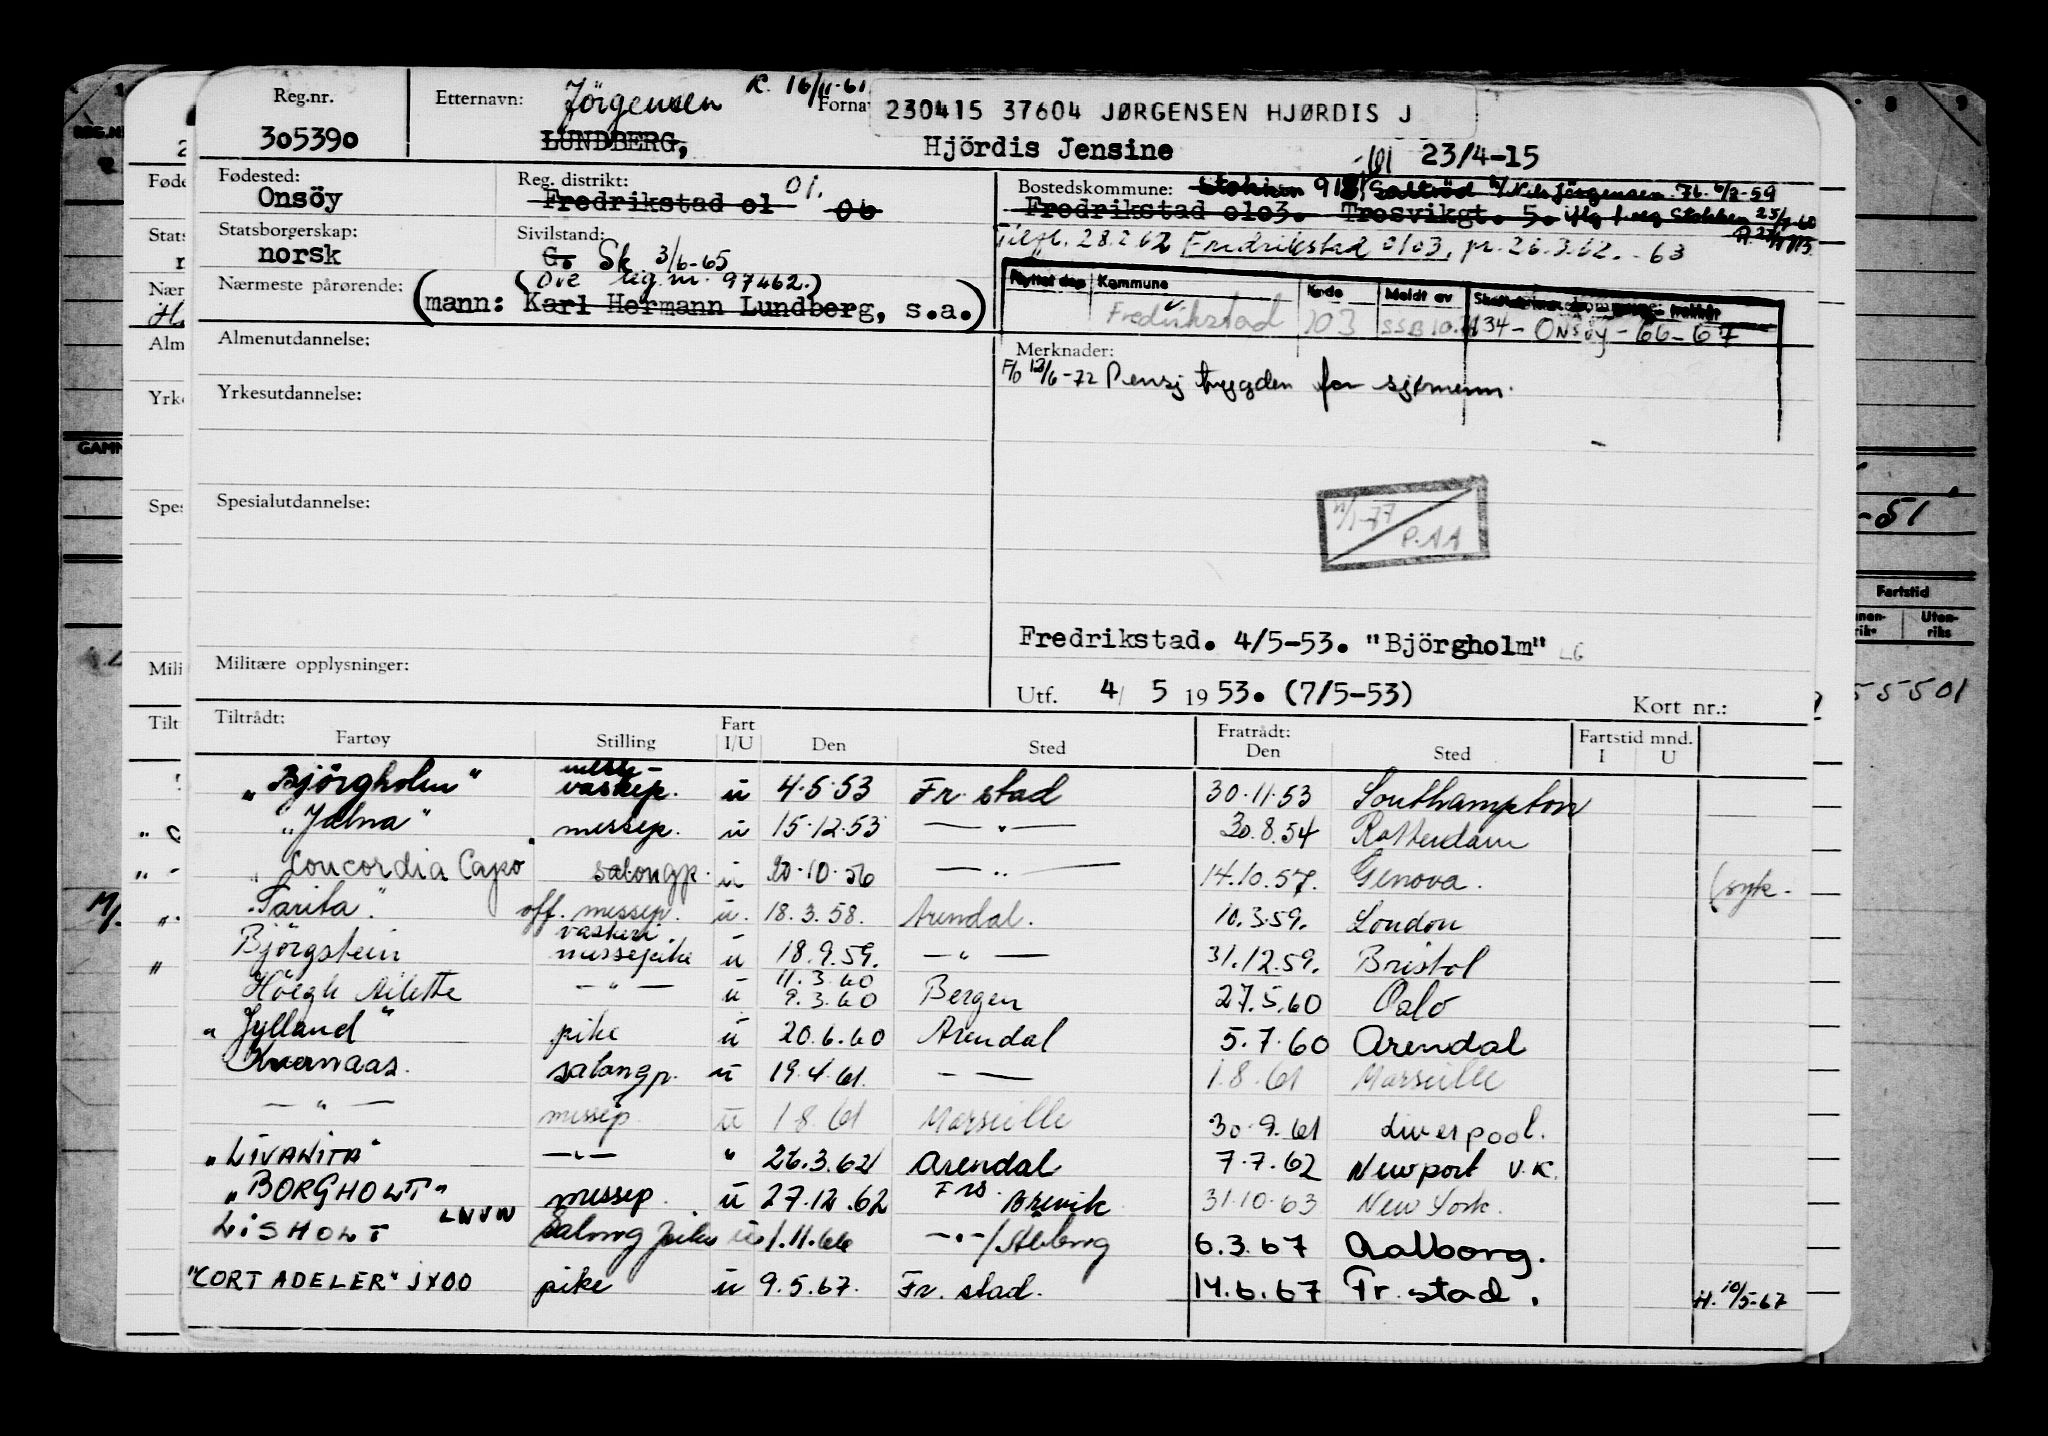 Reg.nr. Etternavn: Jörgensen R. 16/11-61 Forna 230415 37604 JØRGENSEN HJØRDIS J
305390 LUNDBERG, Hjördis Jensine 23/4-15
Fødested: Onsöy
Reg. distrikt: Fredrikstad 01 06 01.
Bostedskommune: Stokken 918 Saltröd Nils Jörgensen. 76. 6/2-59
Fredrikstad 0103. Trosvikgt. 5. Stokken 23/9-60
Statsborgerskap: norsk
Sivilstand: G. Sk 3/6-65
Tilfl. 28.2.62 Fredrikstad 0103, pr. 26.3.62. - 63
Nærmeste pårørende: (Ove reg. nr. 97462.)
(mann: Karl Hermann Lundberg, s.a.)
Flyttet den Kommune Kode Meldt av
Fredrikstad 103 SSB 10. 134 - Onsøy - 66-67
Almenutdannelse:
Merknader:
F/O 12/6-72 Pensj trygden for sjømenn.
Yrkesutdannelse:
Spesialutdannelse:
4/1-77 P.AA
Fredrikstad. 4/5-53. "Björgholm" LG
Militære opplysninger:
Utf. 4/ 5 1953. (7/5-53) Kort nr.:
Tiltrådt: Fratrådt: Fartstid mnd.
Fartøy Stilling Fart I/U Den Sted Den Sted I U
"Björgholm" messe- vaskep. u 4.5.53 Fr. stad 30.11.53 Southampton
"Jalna" messep. u 15.12.53 — " — 30.8.54 Rotterdam
"Concordia Capo" salongp. u 20.10.56 — " — 14.10.57. Genova. (syk.
"Tarifa" off. messep. u. 18.3.58. Arendal. 10.3.59. London
Björgstein vaskeri messepike u 18.9.59. — " — 31.12.59. Bristol
Höegh Ailette — " — u 11.3.60 9.3.60 Bergen 27.5.60 Oslo
"Jylland" pike u 20.6.60 Arendal 5.7.60 Arendal
Kvernaas. salongp. u 19.4.61. — — 1.8.61 Marseille
— " — messep u 1.8.61 Marseille 30.9.61 Liverpool.
"LIVANITA" — " — " 26.3.62 Arendal 7.7.62 Newport U.K.
"BORGHOLT" messep. u 27.12.62 Frs. Brevik 31.10.63 New York.
LISHOLT LNVW Salong pike u. 1.11.66 — " — /Ålborg 6.3.67 Aalborg.
"CORT ADELER" JXOO pike u 9.5.67. Fr. stad. 14.6.67 Fr. stad. H. 10/5-67
REG.N
Føde
Stats
Nær
Alm
Yrke
GAMN
Spes
Mili
Tilt
8 9
-51
Fartstid
Uten-
riks
55501